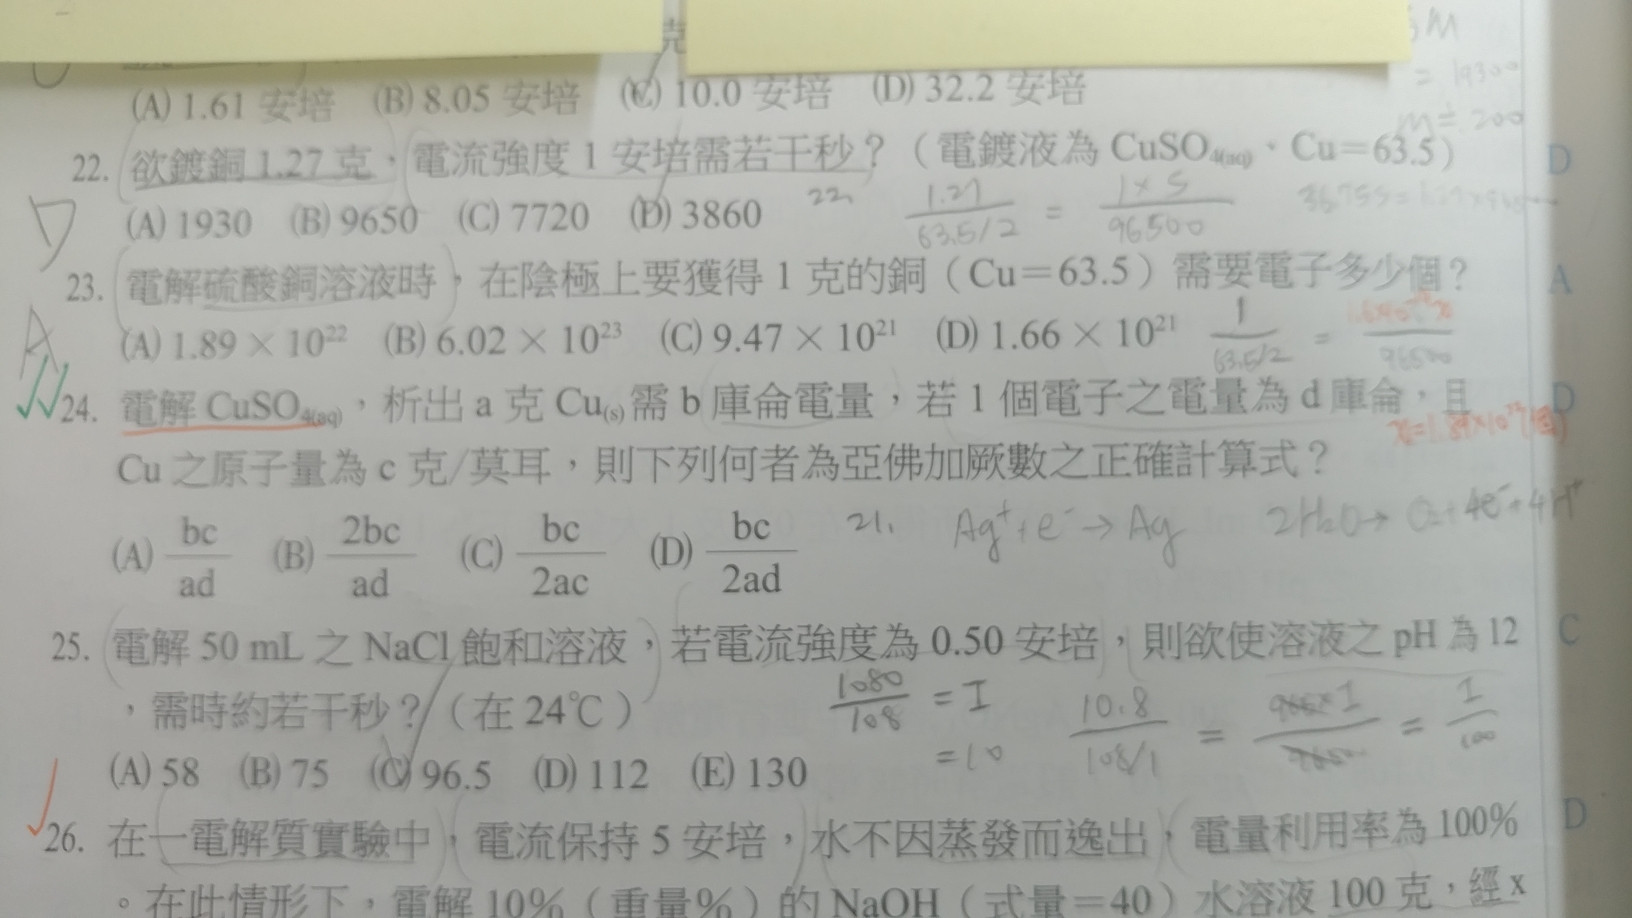 克
(A) 1.61 安培 (B) 8.05 安培 (C) 10.0 安培 (D) 32.2 安培
= 19300
M≒200
22. 欲鍍銅 1.27 克,電流強度 1 安培需若干秒?(電鍍液為 CuSO4(aq)、Cu=63.5) D
D (A) 1930 (B) 9650 (C) 7720 (D) 3860 22. 1.27/63.5/2 = 1×S/96500
23. 電解硫酸銅溶液時,在陰極上要獲得 1 克的銅(Cu=63.5)需要電子多少個? A
A (A) 1.89 × 10²² (B) 6.02 × 10²³ (C) 9.47 × 10²¹ (D) 1.66 × 10²¹ 1/63.5/2 = /96500
24. 電解 CuSO4(aq),析出 a 克 Cu(s)需 b 庫侖電量,若 1 個電子之電量為 d 庫侖,且 D
Cu 之原子量為 c 克/莫耳,則下列何者為亞佛加厥數之正確計算式?
(A) bc/ad (B) 2bc/ad (C) bc/2ac (D) bc/2ad 21. Ag⁺+e⁻→Ag 2H₂O→O₂+4e⁻+4H⁺
25. 電解 50 mL 之 NaCl 飽和溶液,若電流強度為 0.50 安培,則欲使溶液之 pH 為 12 C
,需時約若干秒?(在 24℃) 1080/108 = I 10.8/108/1 = 965×I/9650 = I/100
(A) 58 (B) 75 (C) 96.5 (D) 112 (E) 130 =10
26. 在一電解質實驗中,電流保持 5 安培,水不因蒸發而逸出,電量利用率為 100% D
。在此情形下,電解 10%(重量%)的 NaOH(式量=40)水溶液 100 克,經 x